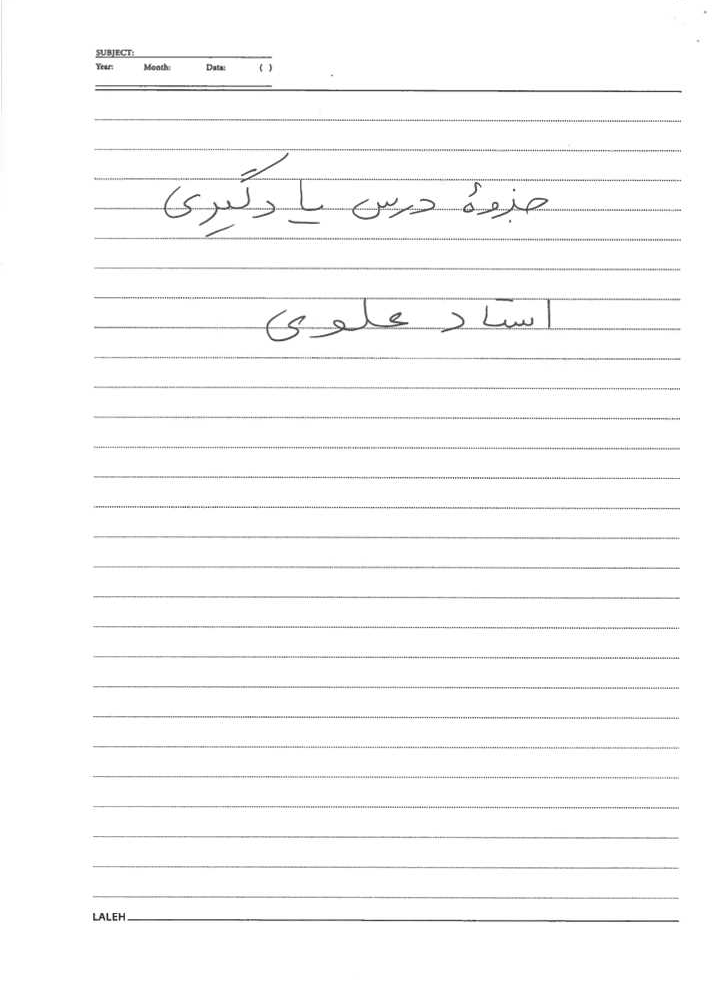 SUBJECT:
Year: Month: Data: ( )
جزوهٔ درس یادگیری
استاد علوی
LALEH